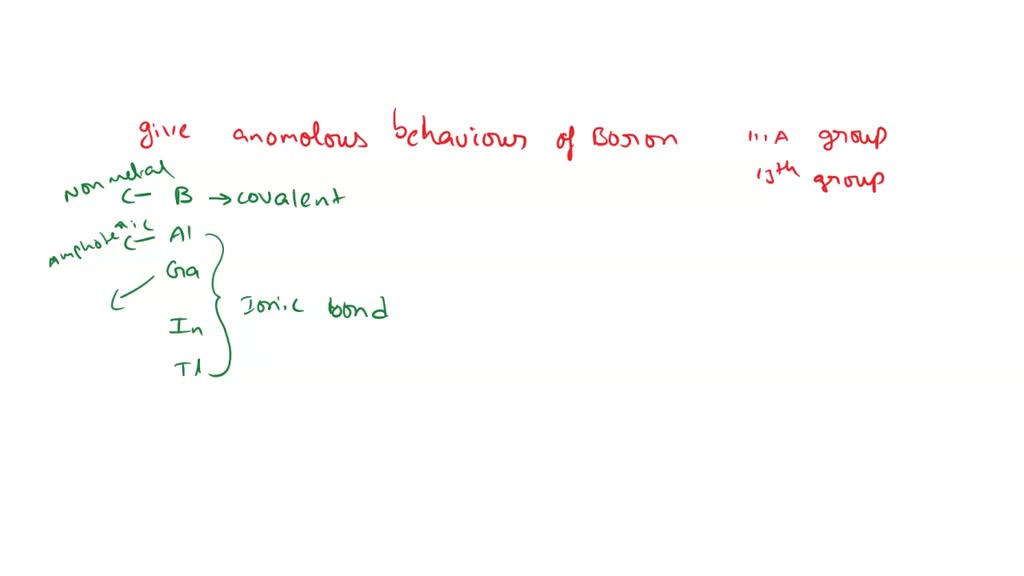 give anomolous behaviour of Boron IIIA group
13th group
Non metal
C- B → covalent
amphoteric
C- Al
Ga
Ionic bond
In
Tl